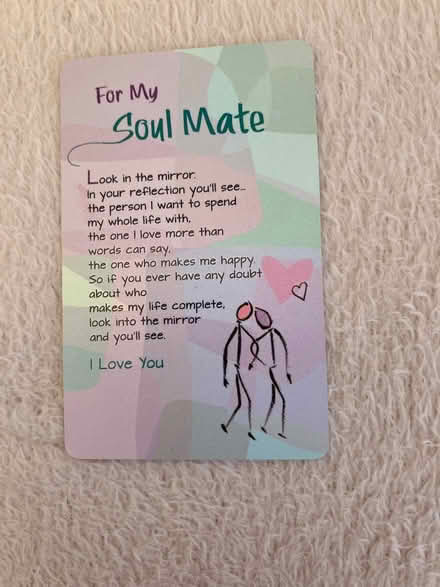 For My
Soul Mate
Look in the mirror.
In your reflection you'll see...
the person I want to spend
my whole life with,
the one I love more than
words can say,
the one who makes me happy.
So if you ever have any doubt
about who
makes my life complete,
look into the mirror
and you'll see.
I Love You